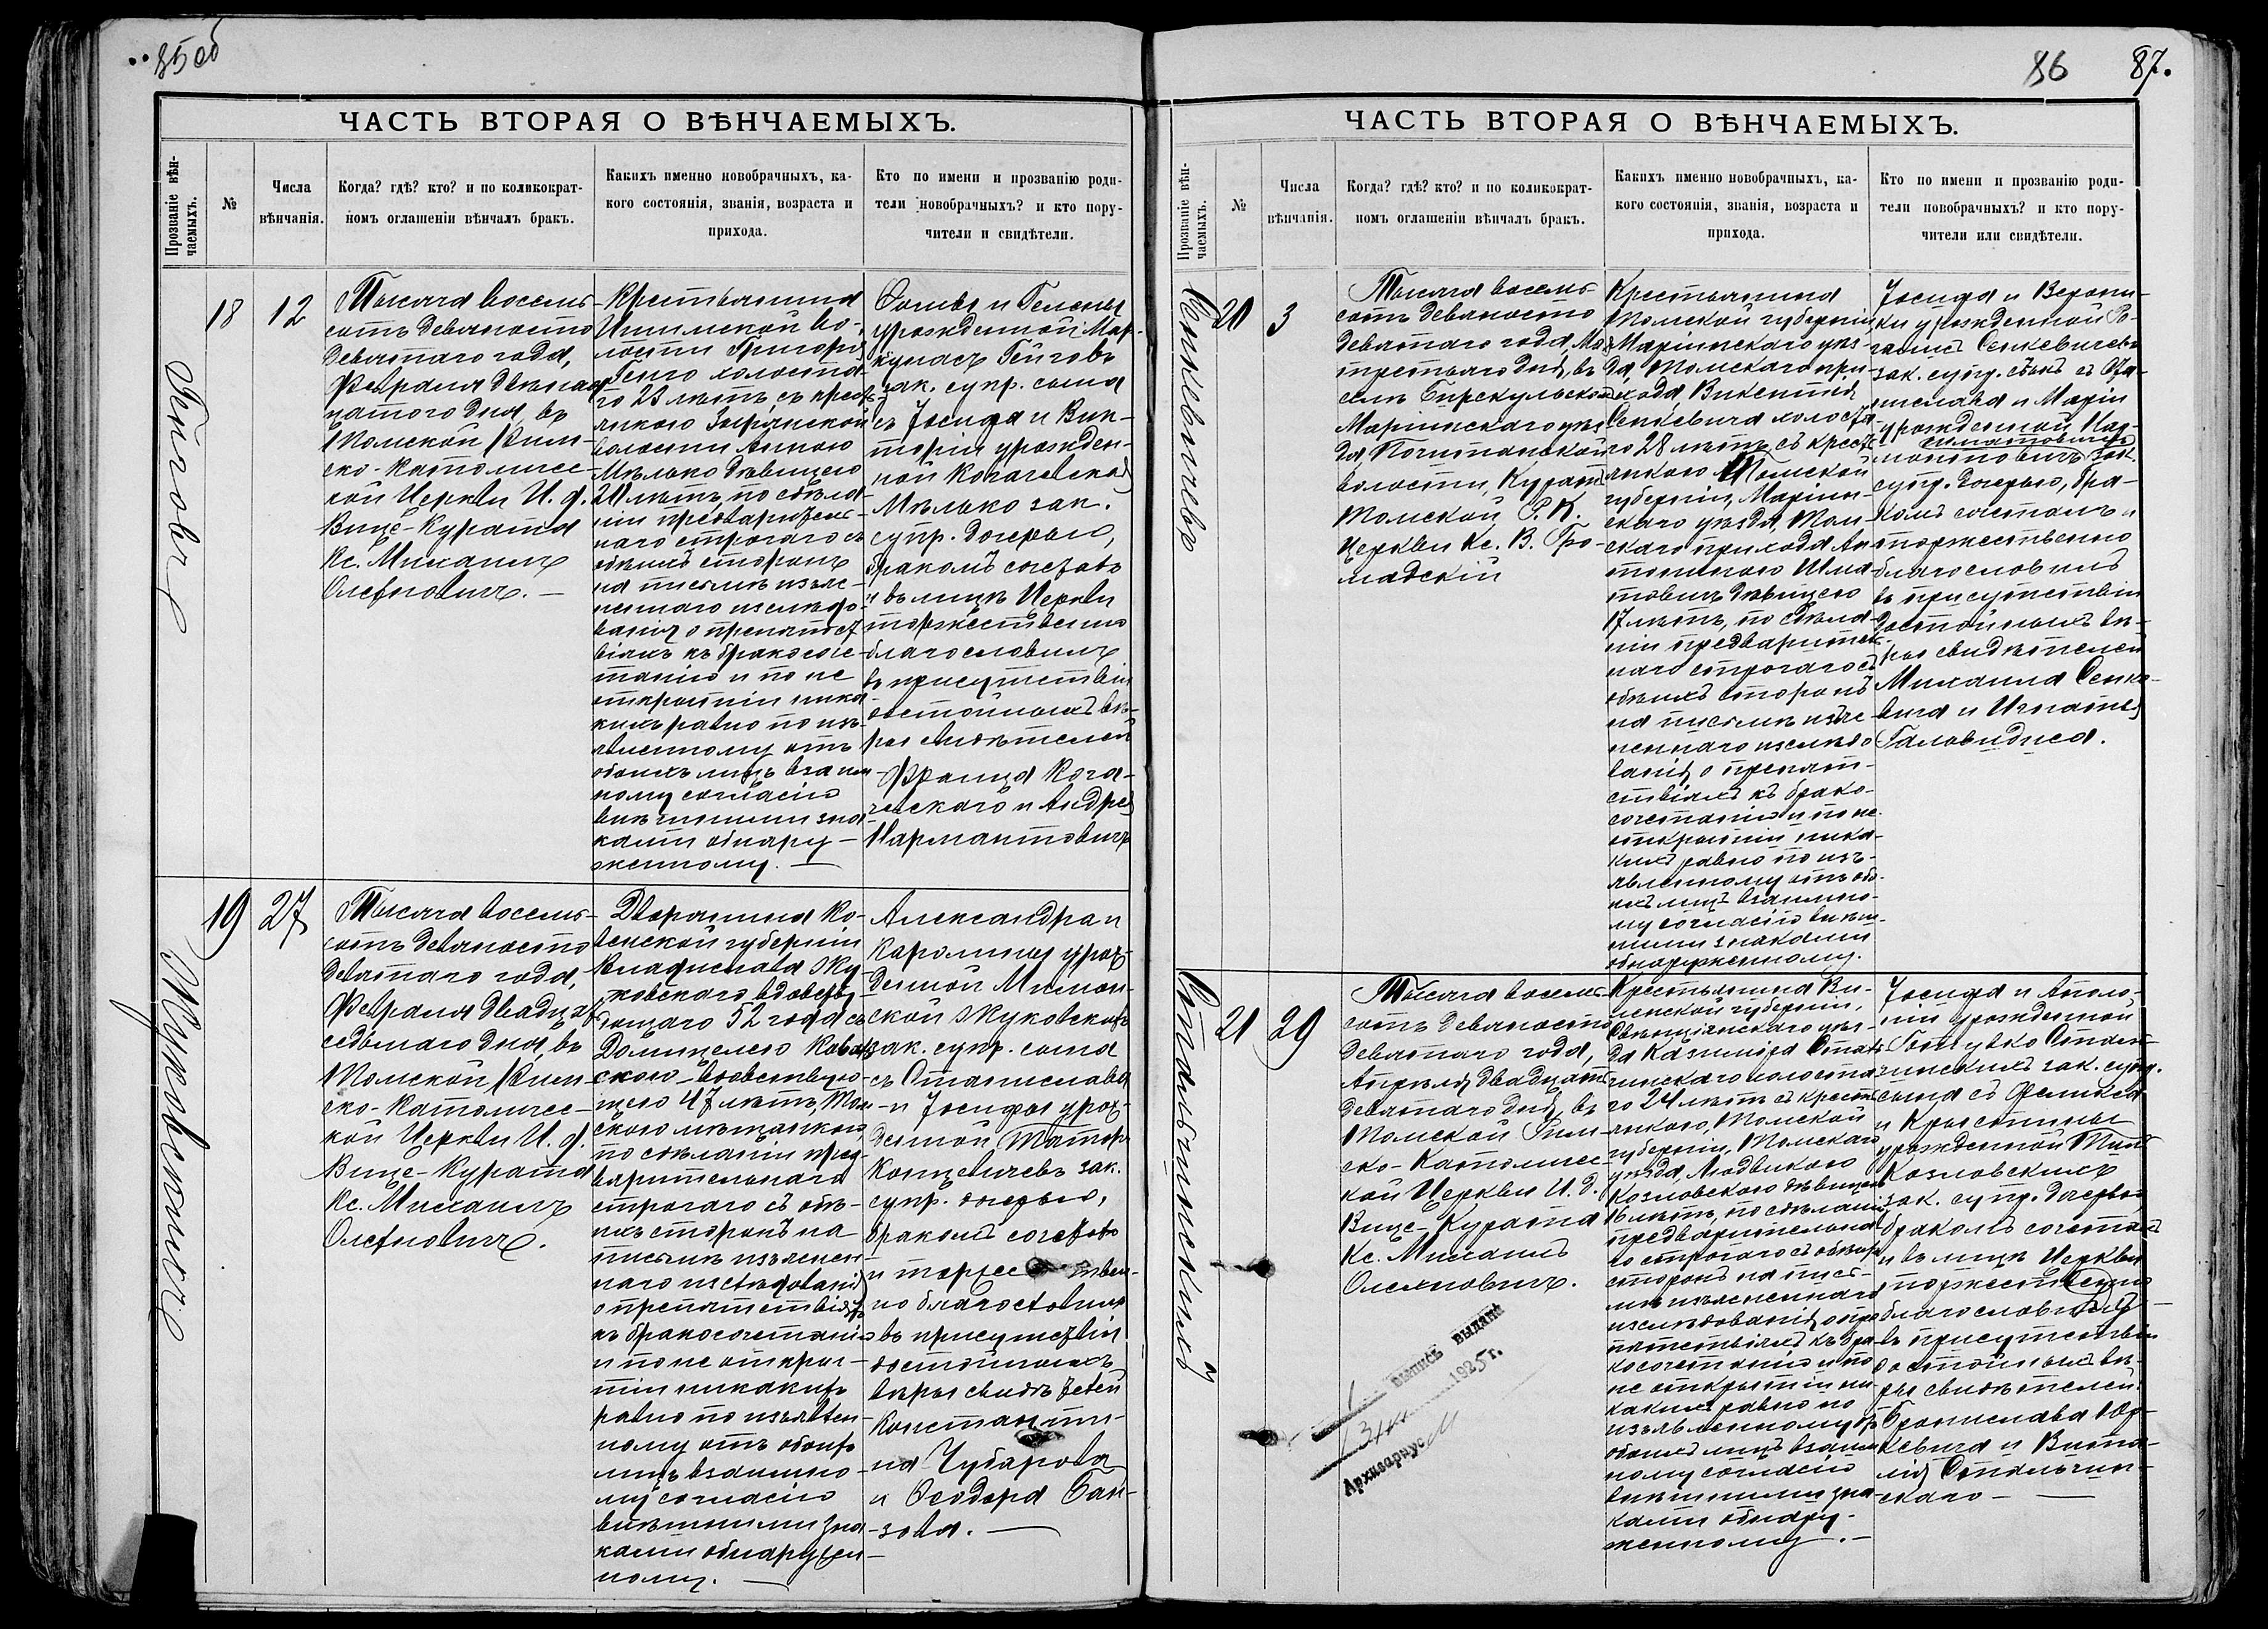 85 об
ЧАСТЬ ВТОРАЯ О ВѢНЧАЕМЫХЪ.
Прозваніе вѣн-
чаемыхъ.
№
Числа
вѣнчанія.
Когда? гдѣ? кто? и по коликократ-
номъ оглашеніи вѣнчалъ бракъ.
Какихъ именно новобрачныхъ, ка-
кого состоянія, званія, возраста и
прихода.
Кто по имени и прозванію роди-
тели новобрачныхъ? и кто пору-
чители и свидѣтели.
18
12
Тысяча восемь-
сотъ девяносто
девятаго года,
Февраля двѣнад
цатого дня, въ
Томской Рим-
ско-Католичес-
кой Церкви И. д.
Вице-Курата
Кс. Михаилъ
Олехновичъ. —
Крестьянина
Ишимской во-
лости Григорія
холоста-
го 23 лѣтъ съ крест
янкою Зырянской
волости Анною
Мѣлько дѣвицею
21 лѣтъ, по сдѣла-
ніи предваритель-
наго строгаго съ
обѣихъ сторонъ
на письмѣ изъяс-
неннаго изслѣдо-
ванія о препятст
віяхъ къ бракосоче-
танію и по не
открытіи ника
кихъ равно по изъ-
явленному отъ
обоихъ лицъ взаим
ному согласію
внѣшними зна
ками обнару-
женному. —
Фомы и Гелены
урожденной Мар-
кунасъ Гейговъ
зак. супр. сына
съ Іосифа и Вик-
торіи урожден-
ной Когачевской
Мѣлько зак.
супр. дочерью,
бракомъ сочеталъ
и въ лицѣ Церкви
торжественно
благословилъ
въ присутствіи
достойныхъ вѣ-
ры свидѣтелей
Франца Кога-
чевскаго и Андрея
Нармонтовича
19
27
Тысяча восемь-
сотъ девяносто
девятаго года,
Февраля двадцать
седьмаго дня, въ
Томской Рим-
ско-Католичес-
кой Церкви И. д.
Вице-Курата
Кс. Михаилъ
Олехновичъ.
Дворянина Ко-
венской губерніи
Владислава Жу-
ковскаго вдовств
ующаго 52 года съ
Домицелею Ковал
скою вдовствую-
щею 47 лѣтъ, Том
скою мѣщанкою,
по сдѣланіи пред-
варительнаго
строгаго съ обѣ-
ихъ сторонъ на
письмѣ изъяснен-
наго изслѣдованія
о препятствіяхъ
къ бракосочетанію
и по не откры-
тіи никакихъ
равно по изъявлен-
ному отъ обоихъ
лицъ взаимно-
му согласію
внѣшними зна
ками обнаружен-
ному. —
Александра и
Каролины урож-
денной
Жуковскихъ
зак. супр. сына
съ Станислава
и Іосифы урож-
денной
Концевичевъ зак.
супр. дочерью,
бракомъ сочеталъ
и торжествен-
но благословилъ
въ присутствіи
достойныхъ
вѣры свидѣтелей
Константи-
на Чубарова
и Ѳеодора Бай-
зова. —
Жуковскихъ
86 87.
ЧАСТЬ ВТОРАЯ О ВѢНЧАЕМЫХЪ.
Прозваніе вѣн-
чаемыхъ.
№
Числа
вѣнчанія.
Когда? гдѣ? кто? и по коликократ-
номъ оглашеніи вѣнчалъ бракъ.
Какихъ именно новобрачныхъ, ка-
кого состоянія, званія, возраста и
прихода.
Кто по имени и прозванію роди-
тели новобрачныхъ? и кто пору-
чители или свидѣтели.
Сенкевичевъ
20
3
Тысяча восемь-
сотъ девяносто
девятаго года, Мая
третьяго дня, въ
селѣ Бирскульскомъ
Маріинскаго уѣз
да, Почитанской
волости, Куратъ
Томской Р. К.
Церкви Кс. В. Гро-
мадскій
Крестьянина
Томской губерніи
Маріинскаго уѣз-
да, Томскаго при-
хода Викентія
Сенкевича холоста
го 28 лѣтъ съ крест
янкою Томской
губерніи, Маріин-
скаго уѣзда, Том-
скаго прихода Ан
тониною Шма-
товичъ дѣвицею
17 лѣтъ, по сдѣла-
ніи предваритель
наго строгаго съ
обѣихъ сторонъ
на письмѣ изъяс
неннаго изслѣдо
ванія о препят-
ствіяхъ къ брако-
сочетанію и по не
открытіи ника-
кихъ равно по изъ-
явленному отъ обо-
ихъ лицъ взаимно-
му согласію внѣш-
ними знаками
обнаруженному.
Іосифа и Верони-
ки урожденной
Сенкевичевъ
зак. супр. сынъ съ Ста-
нислава и Маріи
урожденной Нар-
монтовичъ зак.
супр. дочерью, бра-
комъ сочеталъ и
торжественно
благословилъ
въ присутствіи
достойныхъ вѣ-
ры свидѣтелей
Михаила Сенке-
вича и Игнатія
Галовидиса.
21
29
Тысяча восемь-
сотъ девяносто
девятаго года,
Апрѣля двадцать
девятаго дня, въ
Томской Рим-
ско-Католичес-
кой Церкви И. д.
Вице-Курата
Кс. Михаилъ
Олехновичъ.
Крестьянина Ви-
ленской губерніи,
Свѣнцянскаго уѣз-
да Казиміра Сталь
чинскаго холоста
го 24 лѣтъ съ крест
янкою, Томской
губерніи, Томскаго
уѣзда, Людвикою
Козловскою дѣвицею
16 лѣтъ, по сдѣланіи
предварительна
го строгаго съ обѣихъ
сторонъ на пись-
мѣ изъясненнаго
изслѣдованія о пре
пятствіяхъ къ бра
косочетанію и по
не открытіи ни-
какихъ равно по
изъявленному отъ
обоихъ лицъ взаим
ному согласію
внѣшними зна
ками обнару-
женному. —
Іосифа и Аполо-
ніи урожденной
Сталь-
чинскихъ зак. супр.
сына съ Феликса
и Крыстины
урожденной
Козловскихъ
зак. супр. дочерью
бракомъ сочеталъ
и въ лицѣ Церкви
торжественно
благословилъ
въ присутствіи
достойныхъ вѣ-
ры свидѣтелей
Бронислава Юр-
кевича и Вита-
лія Стальчин-
скаго —
выпись выдана
1925 г.
Архивариус